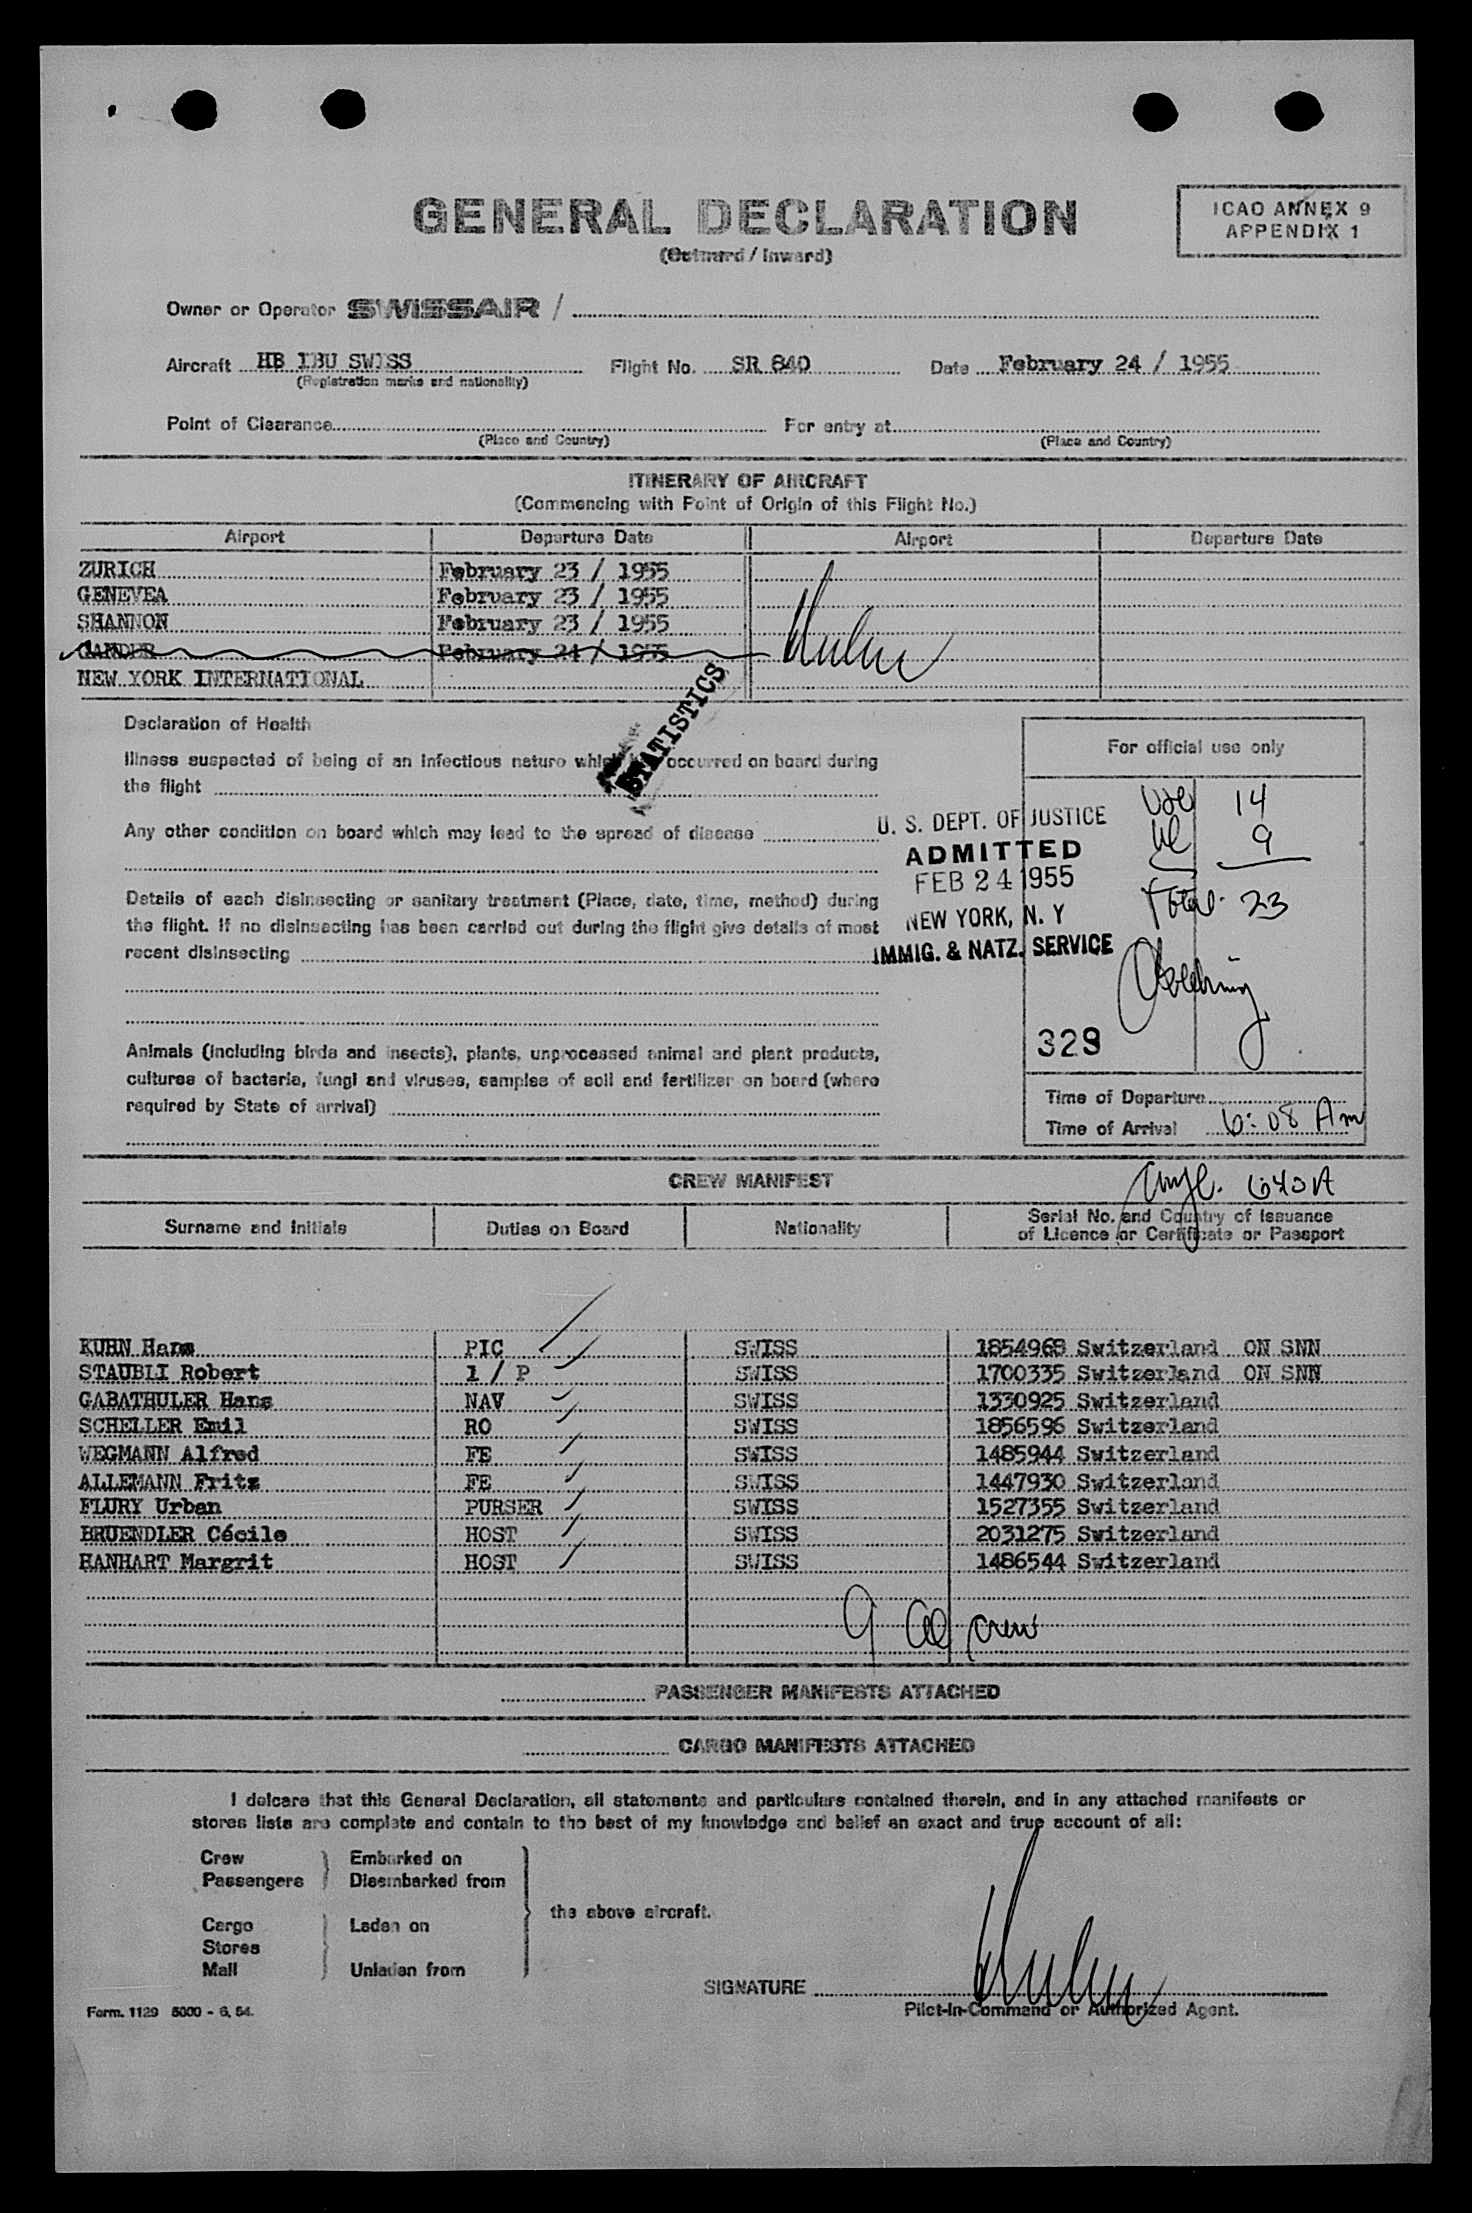 GENERAL DECLARATION
(Outward / Inward)
ICAO ANNEX 9
APPENDIX 1
Owner or Operator SWISSAIR /
Aircraft HB IBU SWISS Flight No. SR 840 Date February 24 / 1955
(Registration marks and nationality)
Point of Clearance For entry at
(Place and Country) (Place and Country)
ITINERARY OF AIRCRAFT
(Commencing with Point of Origin of this Flight No.)
Airport Departure Date Airport Departure Date
ZURICH February 23 / 1955
GENEVEA February 23 / 1955
SHANNON February 23 / 1955
GANDER February 24 / 1955
NEW YORK INTERNATIONAL
STATISTICS
Declaration of Health
Illness suspected of being of an infectious nature which has occurred on board during
the flight
Any other condition on board which may lead to the spread of disease
Details of each disinsecting or sanitary treatment (Place, date, time, method) during
the flight. If no disinsecting has been carried out during the flight give details of most
recent disinsecting
Animals (including birds and insects), plants, unprocessed animal and plant products,
cultures of bacteria, fungi and viruses, samples of soil and fertilizer on board (where
required by State of arrival)
For official use only
14
9
Total 23
U. S. DEPT. OF JUSTICE
ADMITTED
FEB 24 1955
NEW YORK, N. Y
IMMIG. & NATZ. SERVICE
329
Time of Departure
Time of Arrival 6:08 Am
640A
CREW MANIFEST
Surname and Initials Duties on Board Nationality Serial No. and Country of Issuance
of Licence or Certificate or Passport
KUHN Hans PIC SWISS 1854968 Switzerland ON SNN
STAUBLI Robert 1 / P SWISS 1700335 Switzerland ON SNN
GABATHULER Hans NAV SWISS 1330925 Switzerland
SCHELLER Emil RO SWISS 1856596 Switzerland
WEGMANN Alfred FE SWISS 1485944 Switzerland
ALLEMANN Fritz FE SWISS 1447930 Switzerland
FLURY Urban PURSER SWISS 1527355 Switzerland
BRUENDLER Cécile HOST SWISS 2031275 Switzerland
HANHART Margrit HOST SWISS 1486544 Switzerland
9 crew
PASSENGER MANIFESTS ATTACHED
CARGO MANIFESTS ATTACHED
I delcare that this General Declaration, all statements and particulars contained therein, and in any attached manifests or
stores lists are complete and contain to the best of my knowledge and belief an exact and true account of all:
Crew Embarked on
Passengers Disembarked from
the above aircraft.
Cargo Laden on
Stores
Mail Unladen from
SIGNATURE
Pilot-in-Command or Authorized Agent.
Form. 1129 5000 - 6, 54.